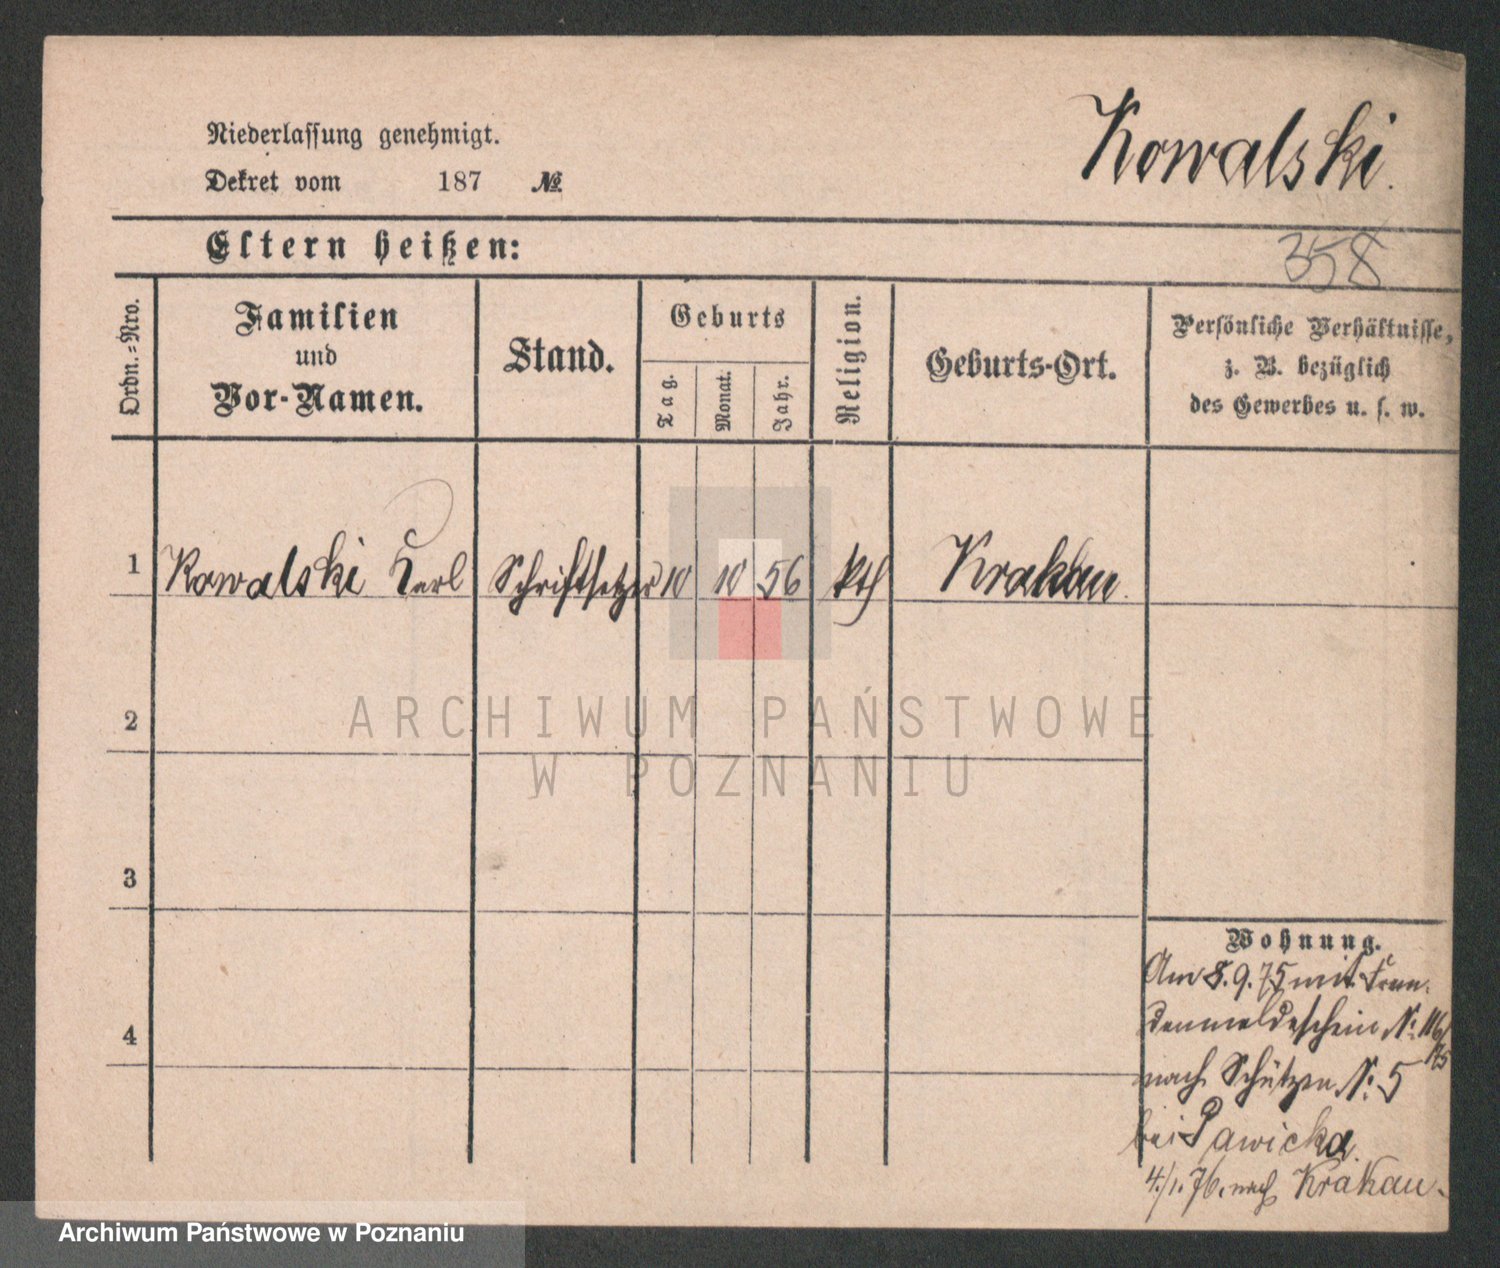 Kowalski.
Niederlassung genehmigt.
Dekret vom 187 №
Eltern heißen:
358
Ordn.-Nro.
Familien
und
Vor-Namen.
Stand.
Geburts
Tag.
Monat.
Jahr.
Religion.
Geburts-Ort.
Persönliche Verhältnisse,
z. B. bezüglich
des Gewerbes u. s. w.
1 Kowalski Karl Schriftsetzer 10 10 56 kth Krakau.
2
3
4
Wohnung.
Am 8.9.75 mit Frem-
denmeldeschein N: 116/
75
nach Schützen N: 5
bei Pawicka.
4./1.76. nach Krakau.
ARCHIWUM PAŃSTWOWE
W POZNANIU
Archiwum Państwowe w Poznaniu